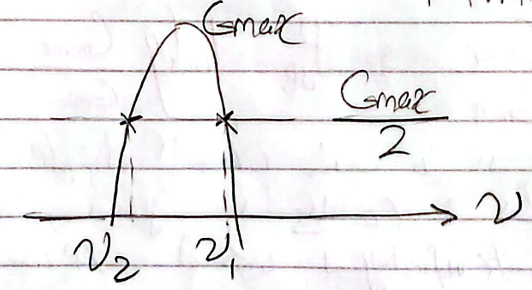 Gmax
Gmax
2
ν
ν2 ν1